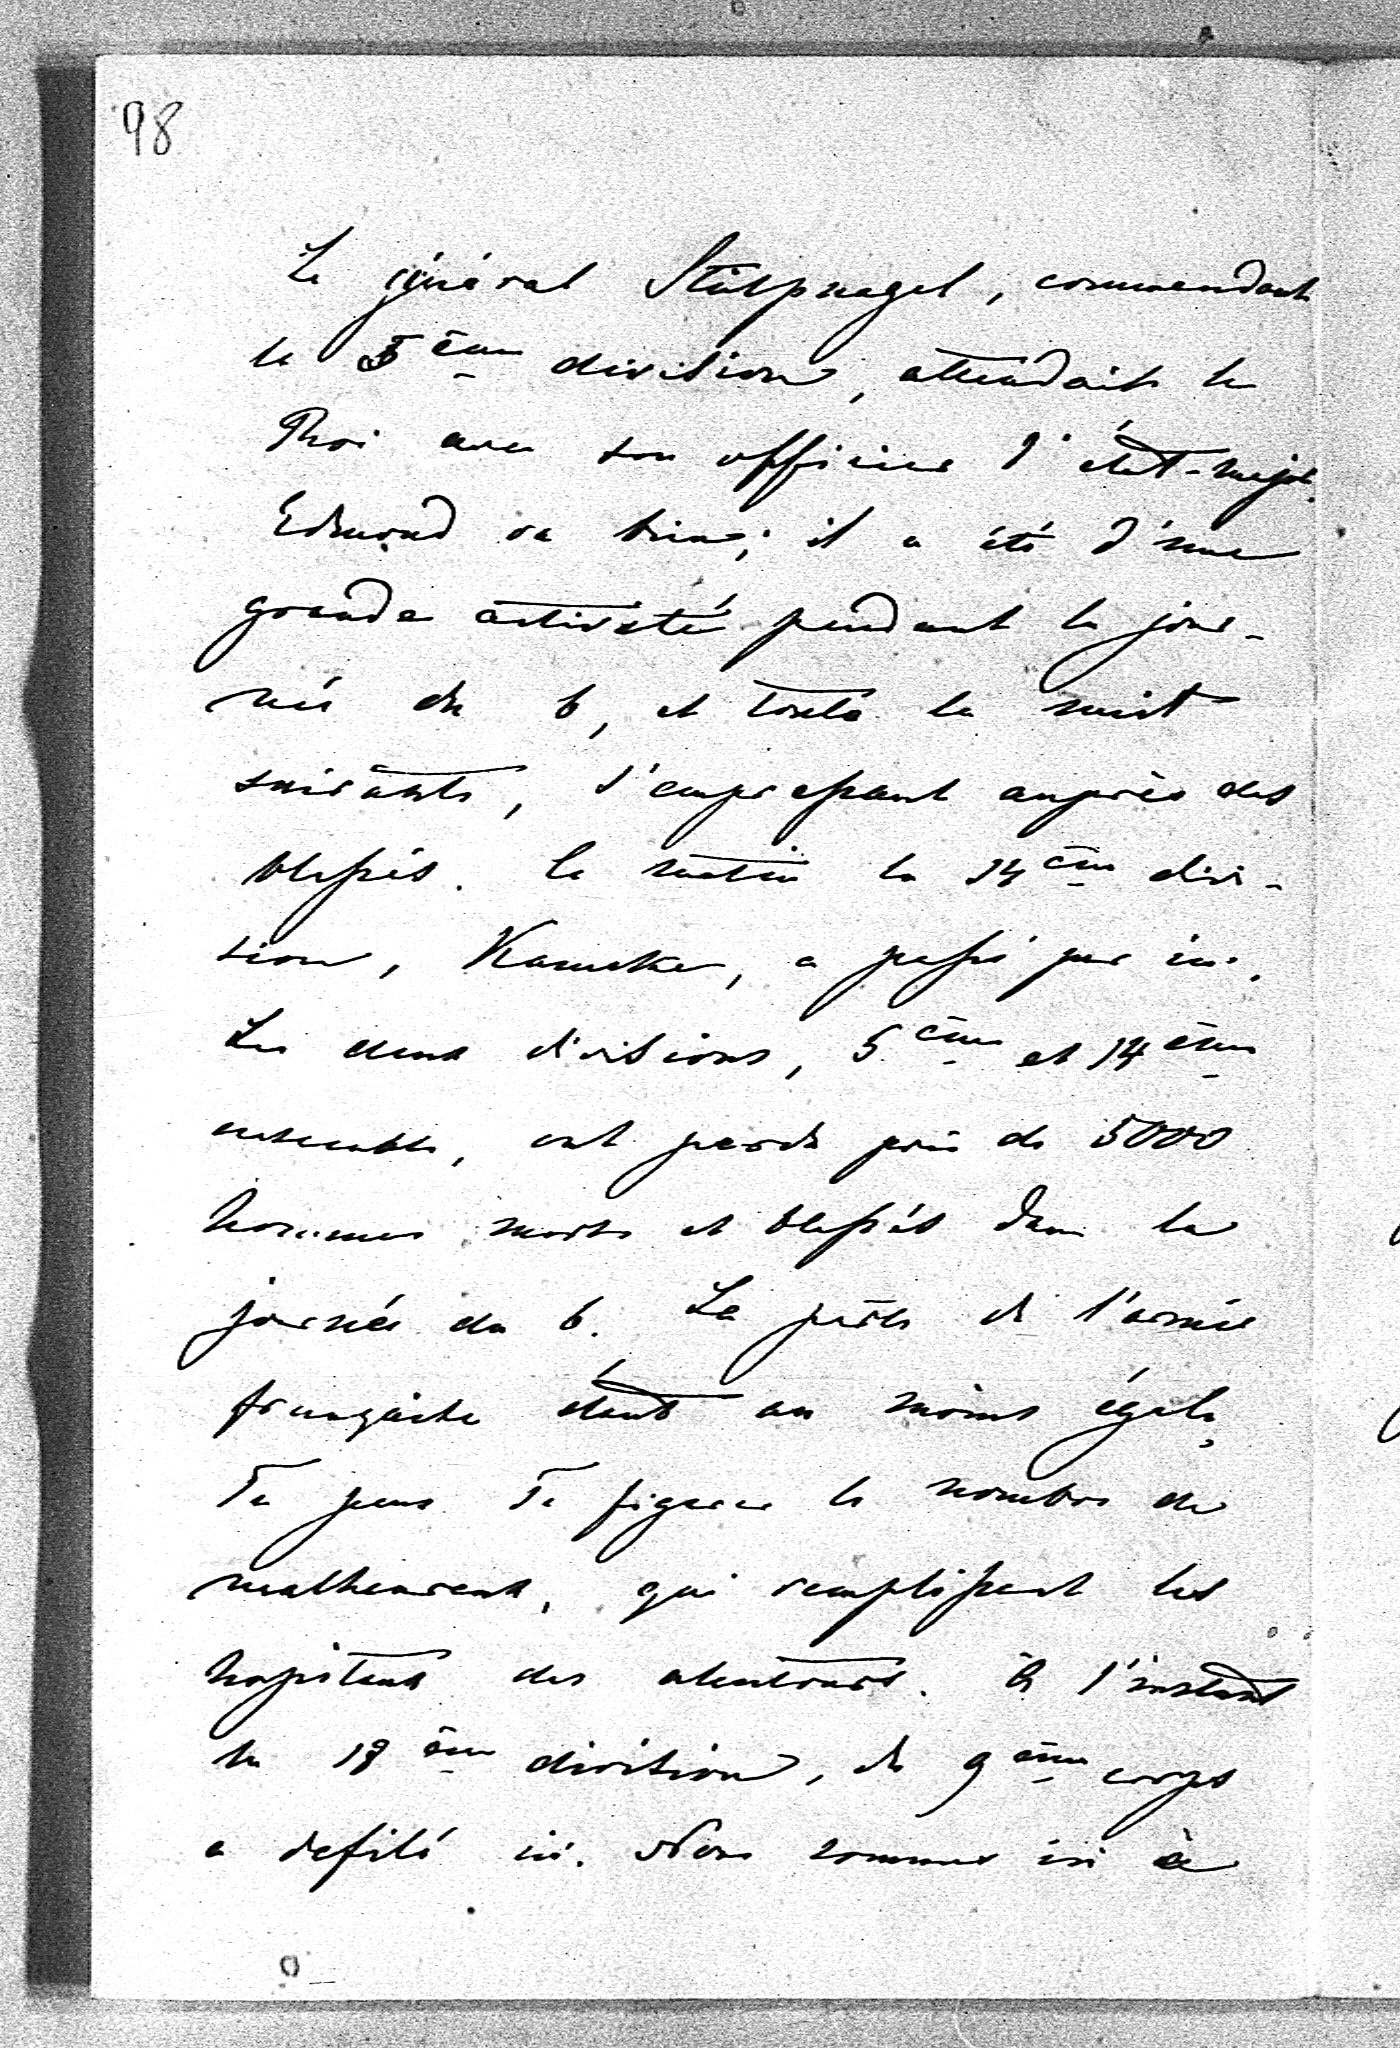 98
Le général Stülpnagel, commandant
la 5ème division, attendait le
Roi avec son officier d'état-major.
Edmond va bien; il a été d'une
grande activité pendant la jour-
née du 6, et toute la nuit
suivante, s'empressant auprès des
blessés. Ce matin la 14ème divi-
sion, Kameke, a passé par ici.
Les deux divisions, 5ème et 14ème
ensemble, ont perdu près de 5000
hommes morts et blessés dans la
journée du 6. La perte de l'armée
française étant au moins égale,
Tu peux Te figurer le nombre de
malheureux, qui remplissent les
hopitaux des alentours. À l'instant
la 18ème division, du 9ème corps
a defilé ici. Nous sommes ici à